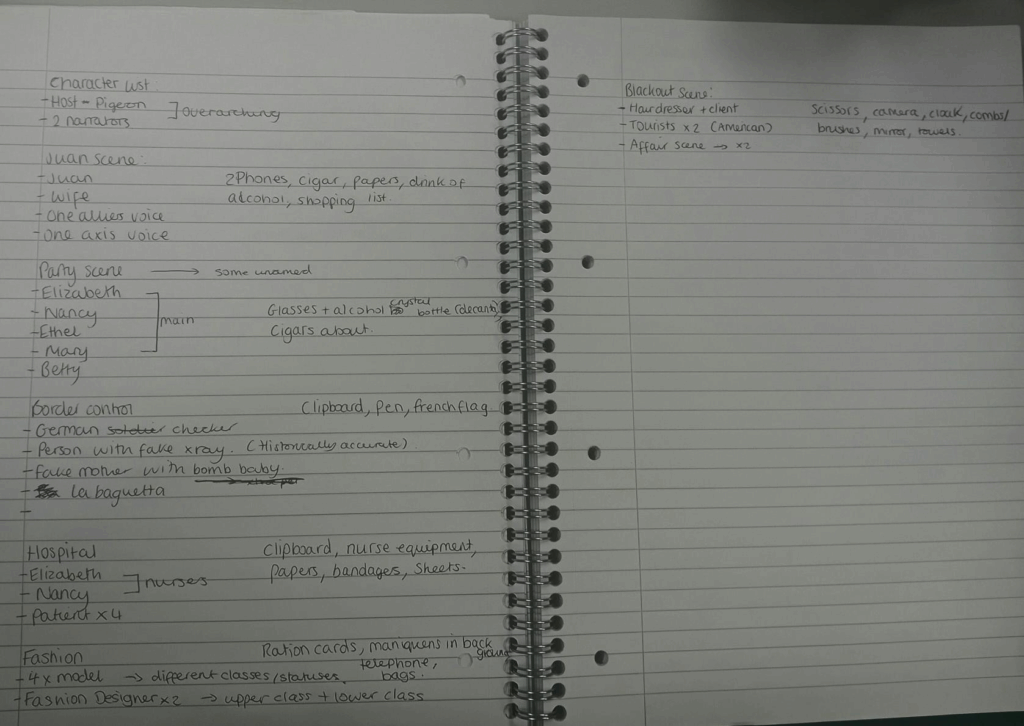 Character list
- Host - Pigeon
- 2 narrators
] Overarching
Juan scene:
- Juan
- Wife
- One allies voice
- One axis voice
2 Phones, cigar, papers, drink of
alcohol, shopping list.
Party scene → some unamed
- Elizabeth
- Nancy
- Ethel
- Mary
- Betty
] main
Glasses + alcohol crystal
bottle (decant),
Cigars about.
Border control
- German soldier checker
- Person with fake xray. (Historically accurate)
- Fake mother with bomb baby.
- La baguetta
-
Clipboard, Pen, french flag
Hospital
- Elizabeth
- Nancy
] nurses
- Patient x4
Clipboard, nurse equipment,
Papers, bandages, Sheets.
Fashion
- 4x model → different classes/statuses
- Fashion Designer x2 → upper class + lower class
Ration cards, maniquens in back
ground
telephone,
bags.
Blackout Scene:
- Hairdresser + client
- Tourists x2 (American)
- Affair scene → x2
Scissors, camera, cloak, combs/
brushes, mirror, towels.